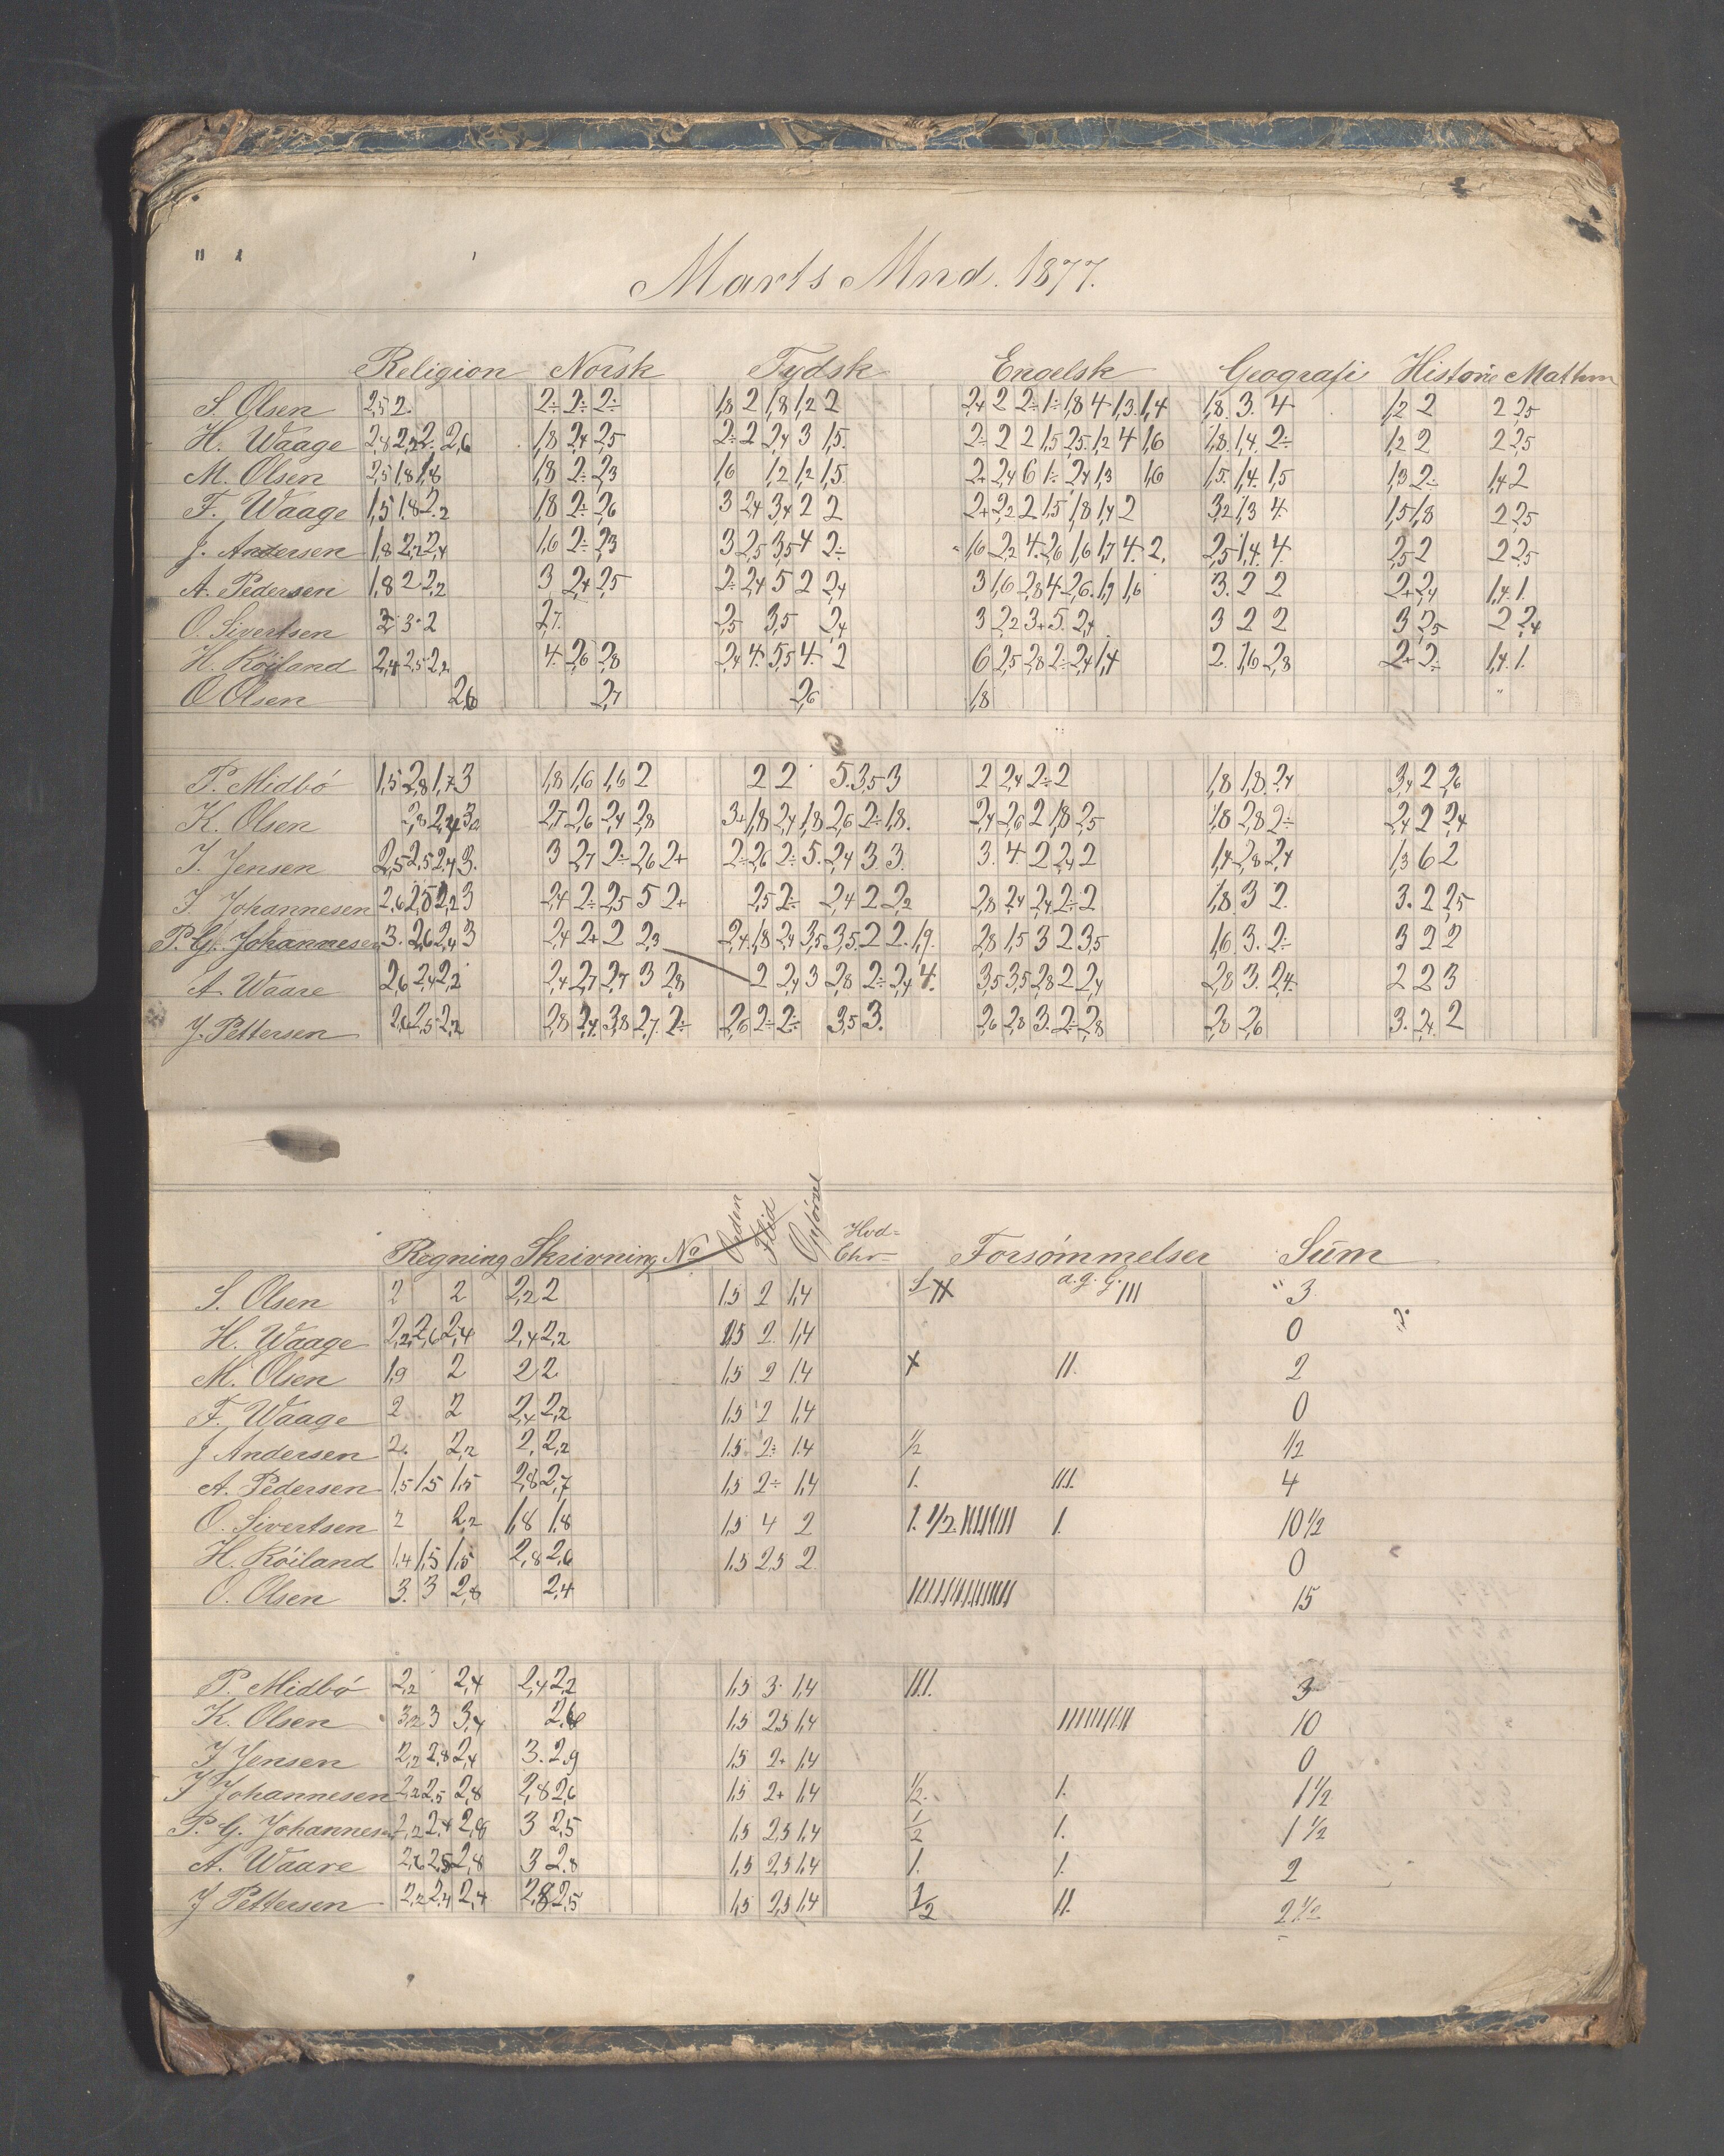 Marts Mnd. 1877.
Religion Norsk Tydsk Engelsk Geografi Historie Mathm
S. Olsen 2,5 2. 2÷ 2÷ 2÷ 1,8 2 1,8 1,2 2 2,4 2 2÷ 1÷ 1,8 4 1,3. 1,4 1,8. 3. 4 1,2 2 2 2,5
H. Waage 2,8 2,2 2. 2,6 1,8 2,4 2,5 2÷ 2 2,4 3 1,5. 2÷ 2 2 1,5 2,5. 1,2 4 1,6 1,8. 1,4. 2÷ 1,2 2 2 2,5
M. Olsen 2,5 1,8 1,8 1,8 2÷ 2,3 1,6 1,2 1,2 1,5. 2+ 2,4 6 1÷ 2,4 1,3 1,6 1,5. 1,4. 1,5 1,3 2÷ 1,4 2
F. Waage 1,5 1,8 2,2 1,8 2÷ 2,6 3 2,4 3,4 2 2 2+ 2,2 2 1,5 1,8 1,4 2 3,2 1,3 4. 1,5 1,8 2 2,5
J. Andersen 1,8 2,2 2,4 1,6 2÷ 2,3 3 2,5 3,5 4 2÷ 1,6 2,2 4. 2,6 1,6 1,7 4. 2. 2,5 1,4. 4. 2,5 2 2 2,5
A. Pedersen 1,8 2 2,2 3 2,4 2,5 2÷ 2,4 5 2 2,4 3 1,6 2,8 4 2,6. 1,9 1,6 3. 2 2 2+ 2,4 1,4. 1.
O. Sivertsen 2 3 2 2,7. 2,5 3,5 2,4 3 2,2 3+ 5. 2,4 3 2 2 3 2,5 2 2,4
H. Röiland 2,4 2,5 2,2 4. 2,6 2,8 2,4 4. 5,5 4. 2 6 2,5 2,8 2÷ 2,4 1,4 2. 1,6 2,8 2+ 2÷ 1,4. 1.
O Olsen 2,6 2,7 2,6 1,8 "
P. Midbö 1,5 2,8 1,7 3 1,8 1,6 1,6 2 2 2 5. 3,5 3 2 2,4 2÷ 2 1,8 1,8. 2,4 3,4 2 2,6
K. Olsen 2,8 2,4 3,2 2,7 2,6 2,4 2,8 3+ 1,8 2,4 1,8 2,6 2÷ 1,8. 2,4 2,6 2 1,8 2,5 1,8 2,8 2÷ 2,4 2 2,4
J. Jensen 2,5 2,5 2,4 3. 3 2,7 2÷ 2,6 2+ 2÷ 2,6 2÷ 5. 2,4 3 3. 3. 4. 2 2,4 2 1,4 2,8 2,4 1,3 6 2
J. Johannesen 2,6 2,5 2,2 3 2,4 2÷ 2,5 5 2+ 2,5 2÷ 2,4 2 2,2 2,8 2,4 2,4 2÷ 2 1,8 3 2. 3. 2 2,5
P. G. Johannesen 3. 2,6 2,4 3 2,4 2+ 2 2,3 2,4. 1,8 2,4 3,5 3,5. 2 2. 1,9. 2,8 1,5 3 2 3,5 1,6 3. 2÷ 3 2 2
A. Waare 2,6 2,4 2,2 2,4 2,7 2,7 3 2,8 2 2,4 3 2,8 2÷ 2,4 4. 3,5 3,5 2,8 2 2,4 2,8 3. 2,4. 2 2 3
J. Pettersen 2,6 2,5 2,2 2,8 2,4. 3,8 2,7. 2÷ 2,6 2÷ 2÷ 3,5 3. 2,6 2,8 3. 2÷ 2,8 2,8 2,6 3. 2,4. 2
Regning Skrivning No Orden Flid Opførsel Hvd= Chr Forsömmelser Süm
S. Olsen 2 2 2,2 2 1,5 2 1,4 d. g. G. III 3
H. Waage 2,2 2,6 2,4 2,4 2,2 1,5 2 1,4 0
M. Olsen 1,9 2 2 2 1,5 2 1,4 x II. 2
F. Waage 2 2 2,4 2,2 1,5 2 1,4 0
J Andersen 2. 2,2 2. 2,2 1,5 2÷ 1,4 1/2 1/2
A. Pedersen 1,5 1,5 1,5 2,8 2,7 1,5 2÷ 1,4 1. III. 4
O. Sivertsen 2 2,2 1,8 1,8 1,5 4 2 1. 1/2. IIIIIII 1. 10 1/2
H. Röiland 1,4 1,5 1,5 2,8 2,6 1,5 2,5 2 0
O. Olsen 3. 3 2,8 2,4 IIIIIIIIIIIIIII 15
P. Midbö 2,2 2,4 2,4 2,2 1,5 3 1,4 III. 3
K. Olsen 3,2 3 3,4 2,6 1,5 2,5 1,4 IIIIIIIIII 10
J Jensen 2,2 2,8 2,4 3. 2,9 1,5 2+ 1,4 0
J Johannesen 2,2 2,5 2,8 2,8 2,6 1,5 2+ 1,4 1/2. 1. 1 1/2
P. G. Johannesen 2,2 2,4 2,8 3 2,5 1,5 2,5 1,4 1/2 1. 1 1/2
A. Waare 2,6 2,5 2,8 3 2,8 1,5 2,5 1,4 1. 1. 2
J Pettersen 2,2 2,4 2,4 2,8 2,5 1,5 2,5 1,4 1/2 II. 2 1/2